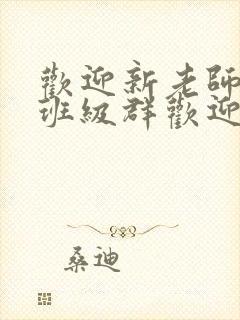 歡迎新老師
班級群歡迎
桑迪